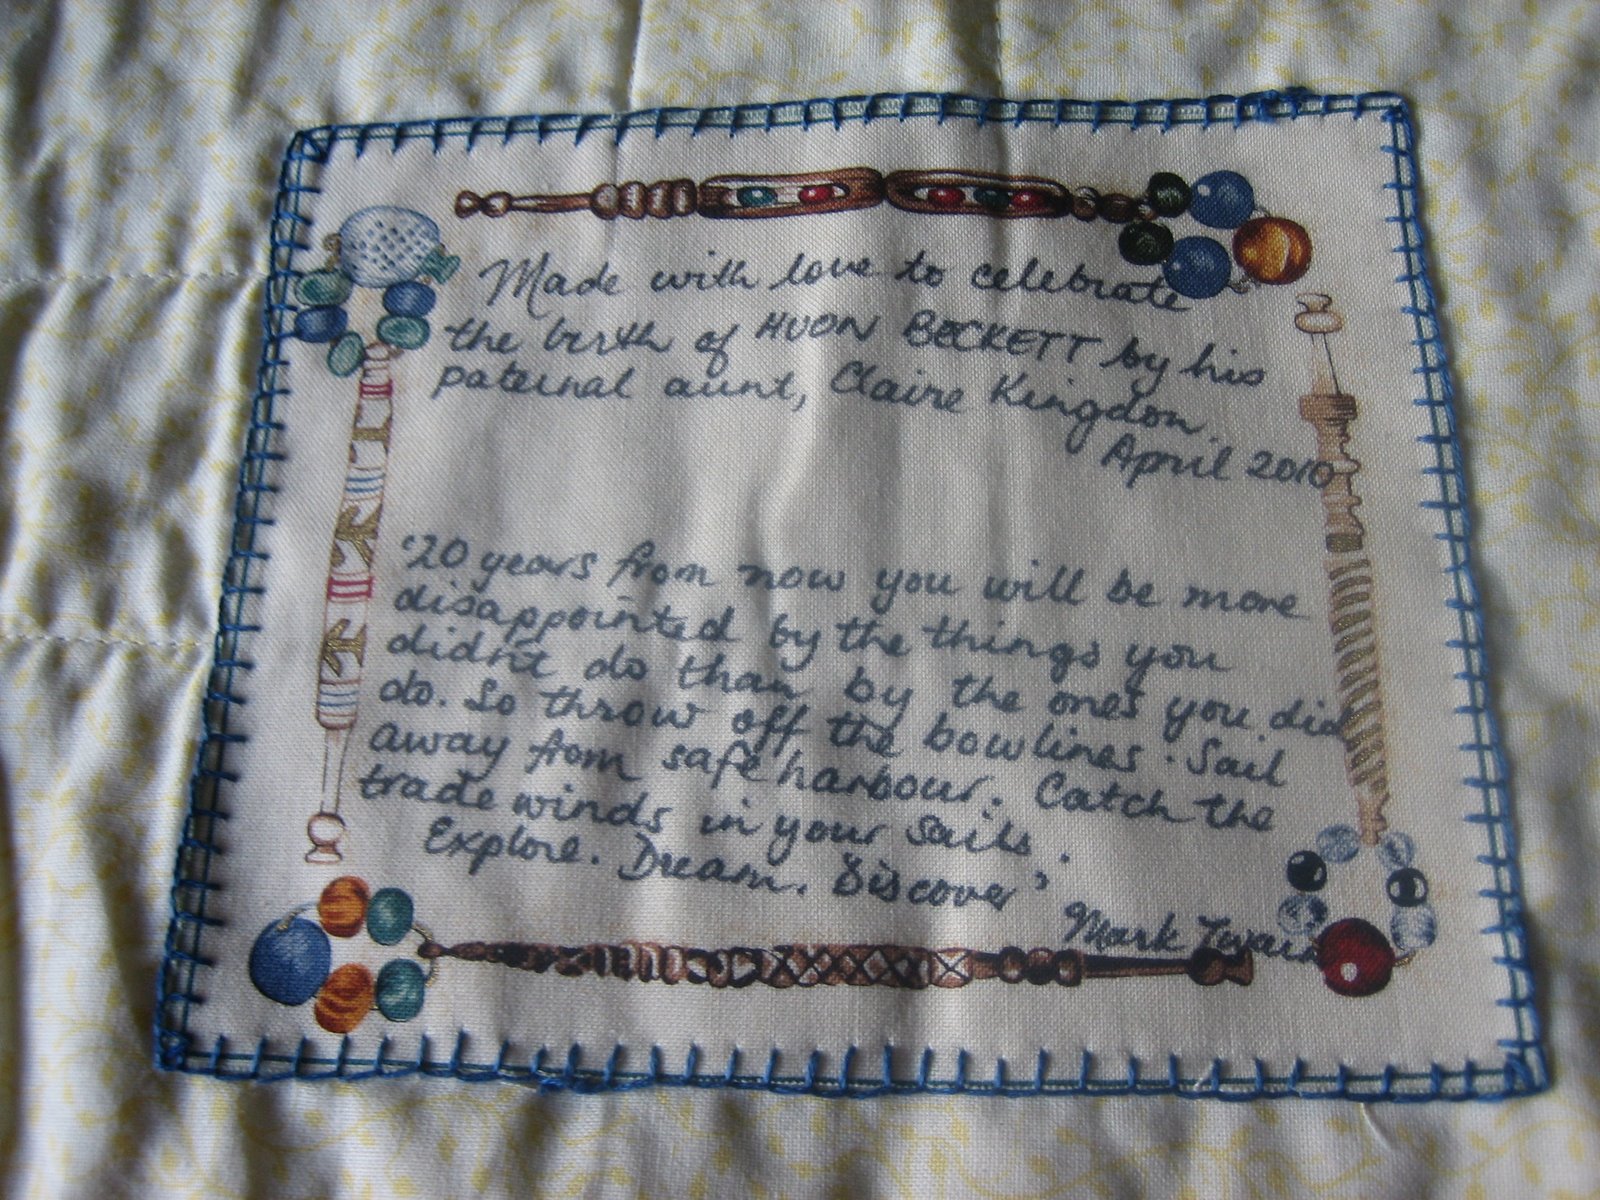 Made with love to celebrate
the birth of HUON BECKETT by his
paternal aunt, Claire Kingdon.
April 2010
'20 years from now you will be more
disappointed by the things you
didn't do than by the ones you did
do. So throw off the bowlines. Sail
away from safe harbour. Catch the
trade winds in your sails.
Explore. Dream. Discover'
Mark Twain